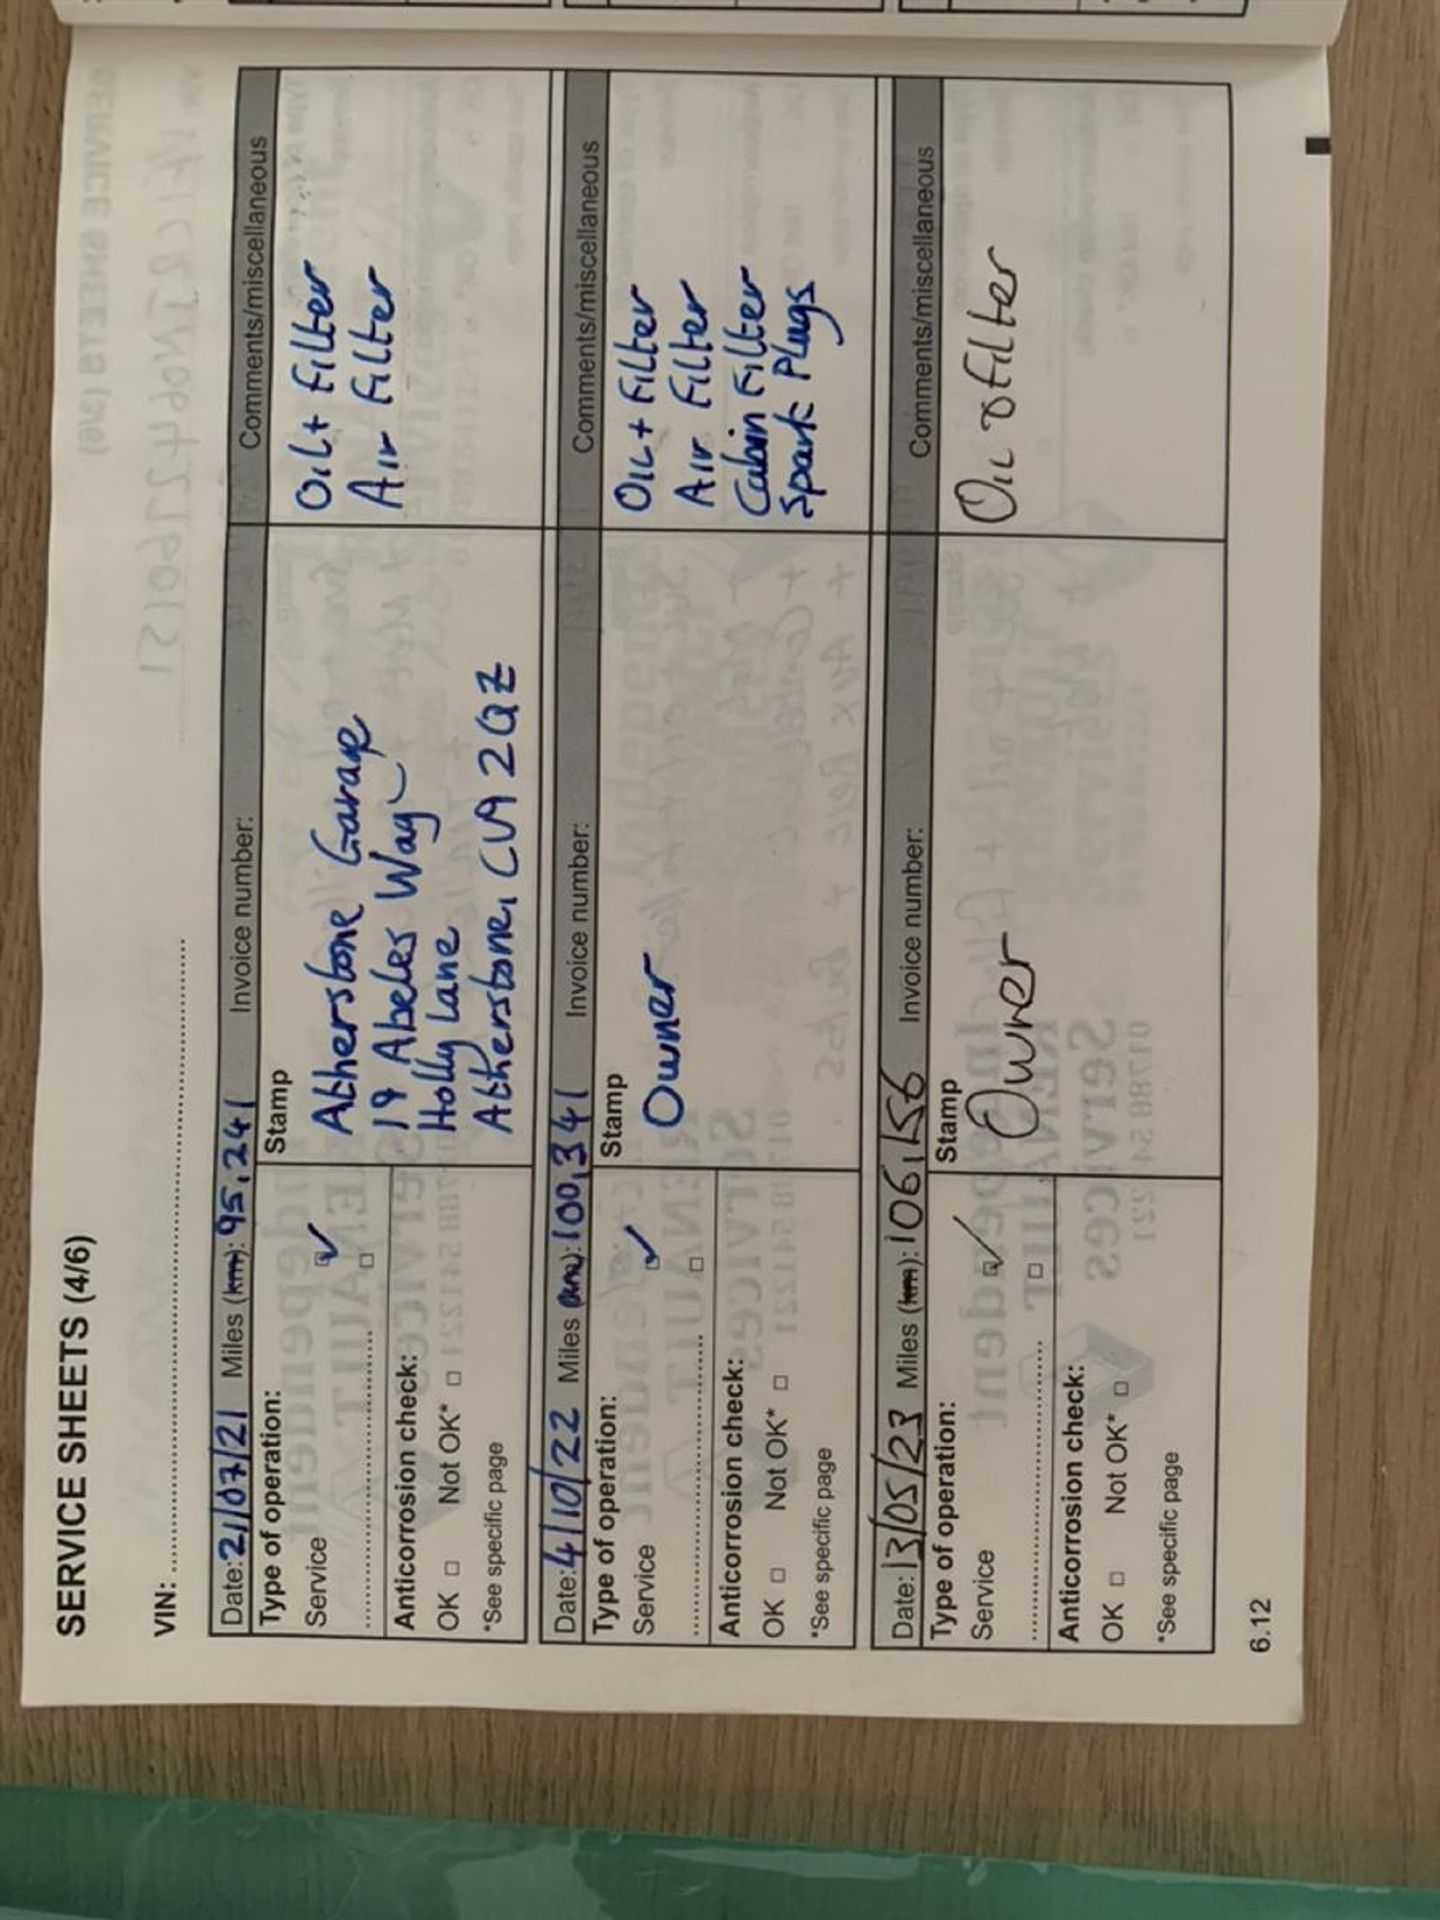 SERVICE SHEETS (4/6)
VIN: ........................................
Date: 21/07/21 Miles (km): 95,241 Invoice number: Comments/miscellaneous
Type of operation:
Service
Anticorrosion check:
OK □ Not OK* □
*See specific page
Stamp
Atherstone Garage
19 Abeles Way
Holly Lane
Atherstone, CV9 2QZ
Oil + Filter
Air Filter
Date: 4/10/22 Miles (km): 100,341 Invoice number: Comments/miscellaneous
Type of operation:
Service
Anticorrosion check:
OK □ Not OK* □
*See specific page
Stamp
Owner
Oil + Filter
Air Filter
Cabin Filter
Spark Plugs
Date: 13/05/23 Miles (km): 106,156 Invoice number: Comments/miscellaneous
Type of operation:
Service
Anticorrosion check:
OK □ Not OK* □
*See specific page
Stamp
Owner
Oil & Filter
6.12